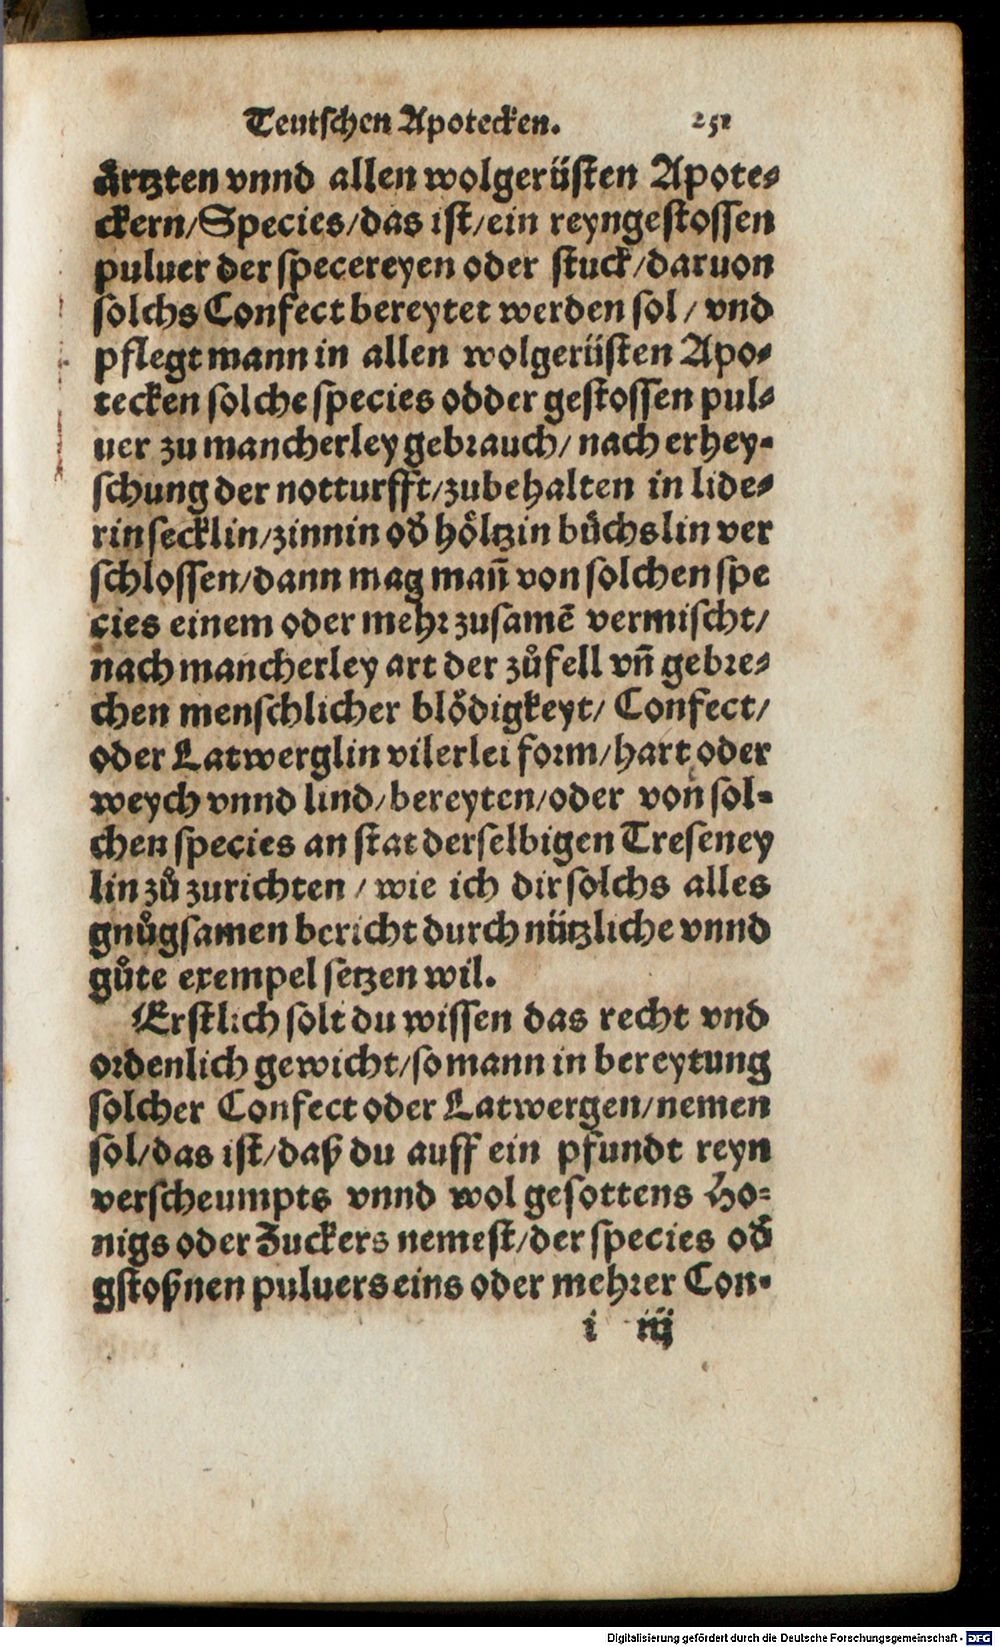 Teutschen Apotecken. 251
ärtzten vnnd allen wolgerüsten Apote⸗
ckern/Species/das ist/ein reyngestossen
puluer der specereyen oder stuck/daruon
solchs Confect bereytet werden sol/ vnd
pflegt mann in allen wolgerüsten Apo⸗
tecken solche species odder gestossen pul⸗
uer zu mancherley gebrauch/ nach erhey⸗
schung der notturfft/zubehalten in lide⸗
rin secklin/zinnin od̉ höltzin büchslin ver
schlossen/dann mag mañ von solchen spe
cies einem oder mehr zusamẽ vermischt/
nach mancherley art der zůfell vñ gebre⸗
chen menschlicher blödigkeyt/ Confect/
oder Latwerglin vilerlei form/hart oder
weych vnnd lind/bereyten/oder von sol⸗
chen species an stat derselbigen Treseney
lin zů zurichten/ wie ich dir solchs alles
gnůgsamen bericht durch nützliche vnnd
gůte exempel setzen wil.
Erstlich solt du wissen das recht vnd
ordenlich gewicht/so mann in bereytung
solcher Confect oder Latwergen/nemen
sol/das ist/daß du auff ein pfundt reyn
verscheumpts vnnd wol gesottens Ho⸗
nigs oder Zuckers nemest/der species od̉
gstoßnen puluers eins oder mehrer Con⸗
i iiij
Digitalisierung gefördert durch die Deutsche Forschungsgemeinschaft - DFG